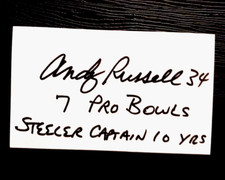 Andy Russell 34
7 PRO BOWLS
STEELER CAPTAIN 10 YRS